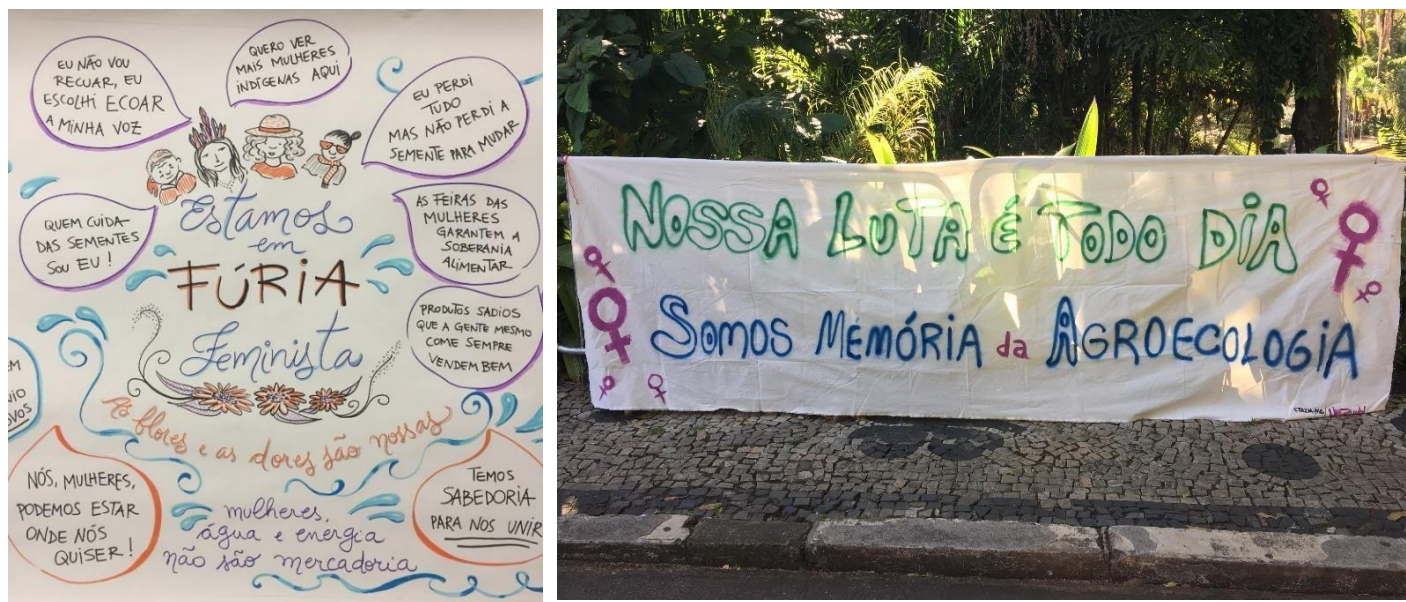 EU NÃO VOU
RECUAR, EU
ESCOLHI ECOAR
A MINHA VOZ
QUERO VER
MAIS MULHERES
INDÍGENAS AQUI
EU PERDI
TUDO
MAS NÃO PERDI A
SEMENTE PARA MUDAR
QUEM CUIDA
DAS SEMENTES
SOU EU!
Estamos
em
FÚRIA
Feminista
AS FEIRAS DAS
MULHERES
GARANTEM A
SOBERANIA
ALIMENTAR
PRODUTOS SADIOS
QUE A GENTE MESMO
COME SEMPRE
VENDEM BEM
As flores e as dores são nossas
NÓS, MULHERES,
PODEMOS ESTAR
ONDE NÓS
QUISER!
TEMOS
SABEDORIA
PARA NOS UNIR
mulheres,
água e energia
não são mercadoria
NOSSA LUTA É TODO DIA
SOMOS MEMÓRIA da AGROECOLOGIA